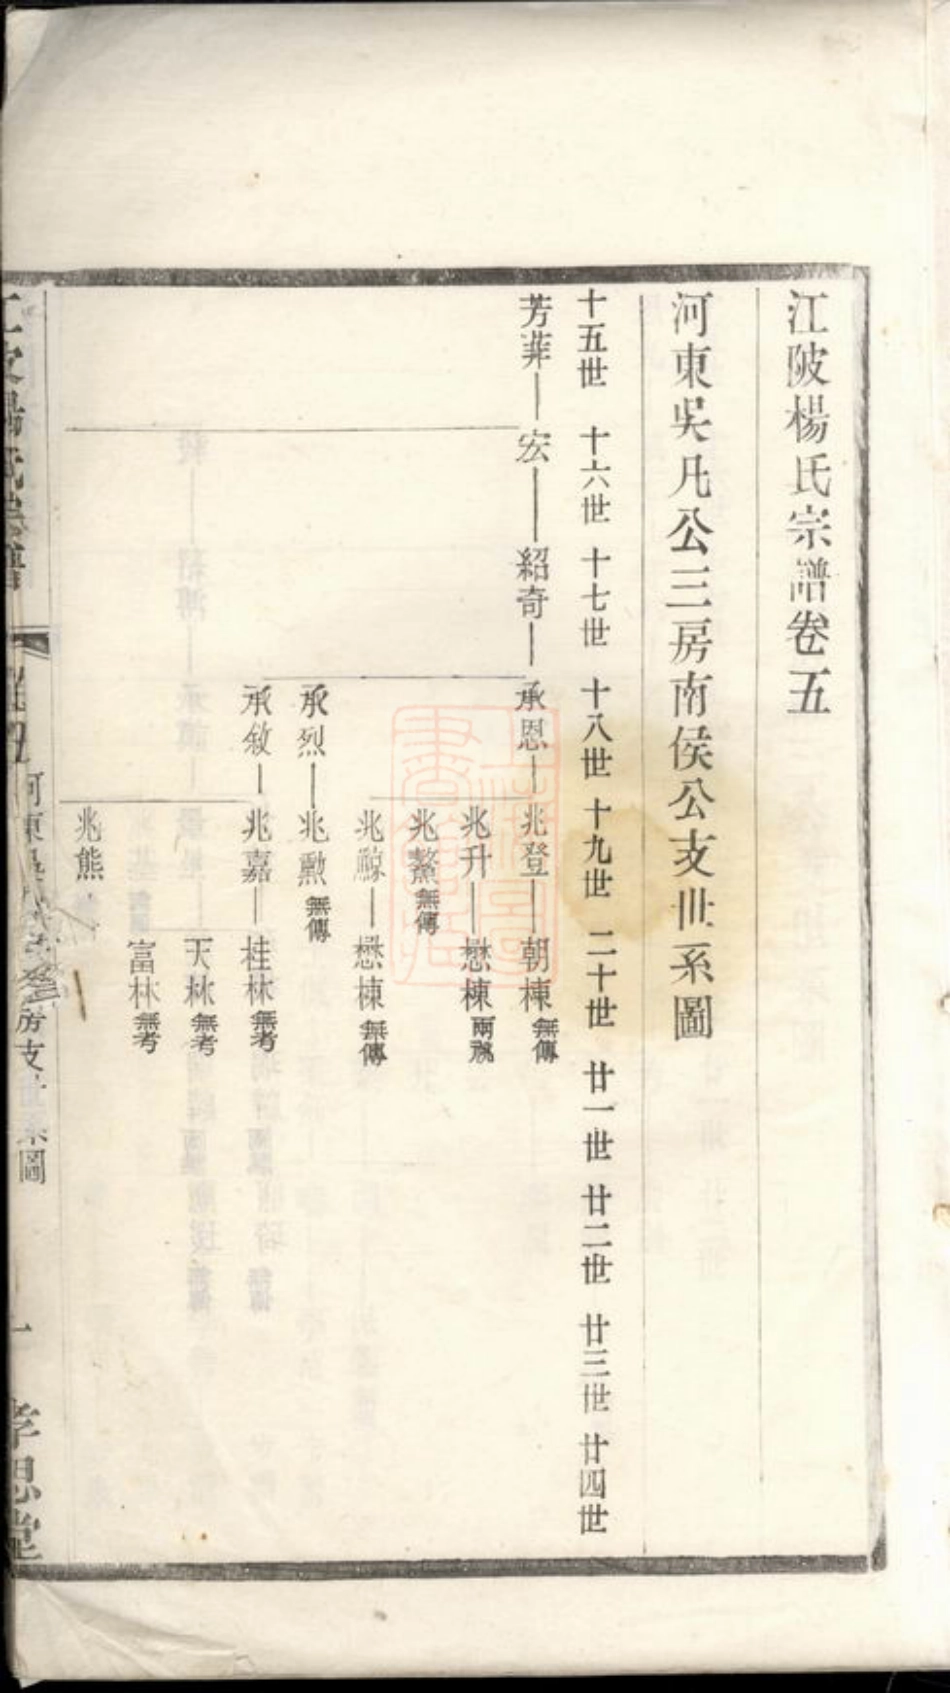 江陂楊氏宗譜卷五
河東吳凡公三房南侯公支世系圖
十五世 十六世 十七世 十八世 十九世 二十世 廿一世 廿二世 廿三世 廿四世
芳菲 宏 紹奇 承恩 兆登 朝棟 無傳
兆升 懋棟 兩祧
兆鰲 無傳
兆鯨 懋棟 無傳
承烈 兆勳 無傳
承敘 兆嘉 桂林 無考
天林 無考
富林 無考
兆熊
楊氏宗譜
河東
房支世系圖
一
孝思堂